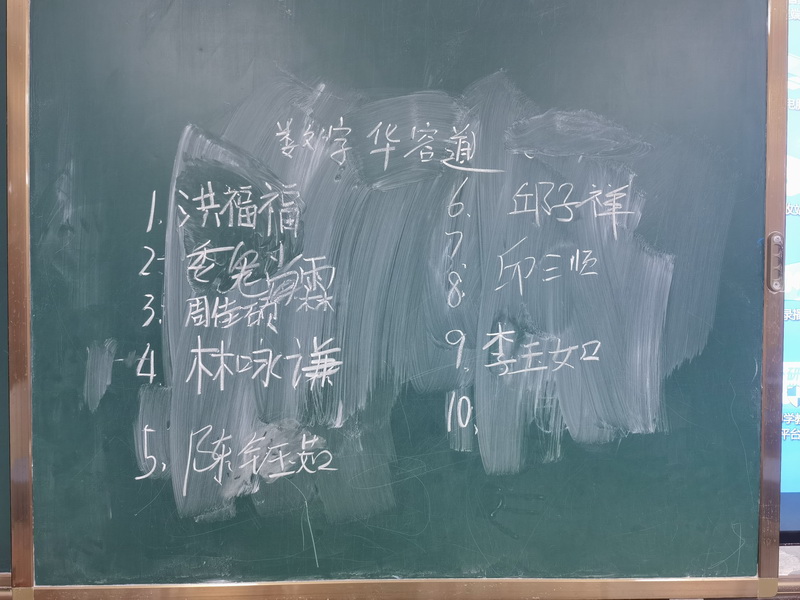 数字华容道
1. 洪福福
2. 霖
3. 周佳硕
4. 林咏谦
5. 陈钰茹
6. 邱子祥
7
8. 邱三恒
9. 李玉如
10.